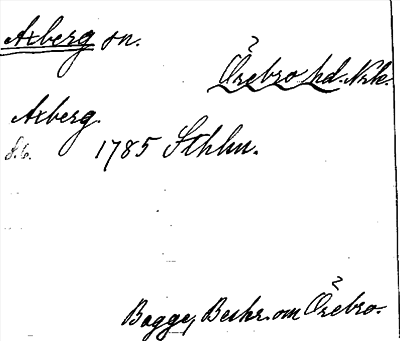 Axberg sn.
Örebro hd. Nrk.
Axberg.
f. b. 1785 Sthlm.
Bagge, Beskr. om Örebro.